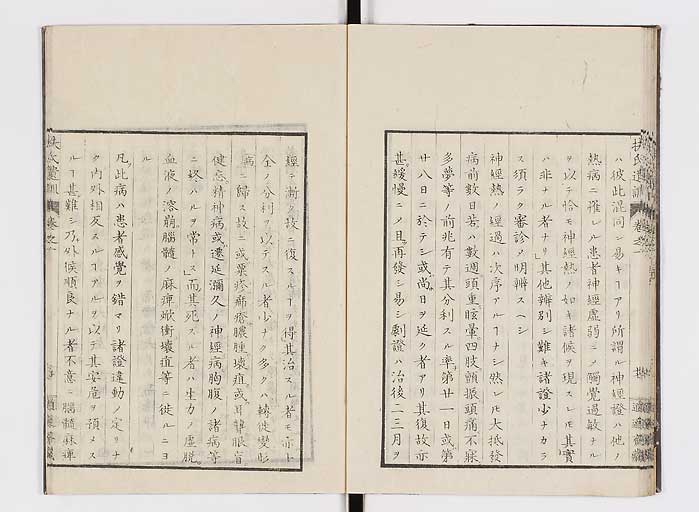 ハ彼此混同シ易キヿアリ所謂ル神經證ハ他ノ
熱病ニ罹レル患者神經虚弱ニ〆觸覺過敏ナル
ヲ以テ恰モ神經熱ノ如キ諸候ヲ現スレ𪜈其實
ハ非ナル者ナリ其他辨別シ難キ諸證少ナカラ
ス須ラク審診〆明辨スヘシ
神經熱ノ經過ハ次序アルヿナシ然レ𪜈大抵發
病前數日若ハ數週頭重眩暈四肢顫振頭痛不寐
多夢等ノ前兆有テ其分利スル率子第廿一日或第
廿八日ニ於テシ或尚日ヲ延ク者アリ其復故亦
甚緩慢ニ〆且再發シ易シ劇證ハ治後二三月ヲ
經テ漸ク故ニ復スルヿヲ得其治スル者モ亦ト
全ノ分利ヲ以テスル者少ナク多クハ轉徙變形
病ニ歸ス故ニ或粟疹癤瘡膿腫壊疽或耳聾眼盲
健忘精神病或遷延瀰久ノ神經病胸腹ノ諸病等
ニ終ハルヲ常トス而其死スル者ハ生力ノ虚脱
血液ノ溶崩腦髓ノ麻痺焮衝壊疽等ニ徙ルニヨ
ル
凡此病ハ患者感覺ヲ錯マリ諸證違動ノ定リナ
ク内外相反スルヿアルヲ以テ其安危ヲ預メス
ルヿ甚難シ乃外候順良ナル者不意ニ腦髓麻痺
扶氏遺訓
卷之一